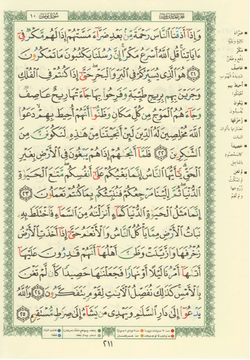 وَإِذَآ أَذَقْنَا ٱلنَّاسَ رَحْمَةً مِّنۢ بَعْدِ ضَرَّآءَ مَسَّتْهُمْ إِذَا لَهُم مَّكْرٌ فِىٓ
ءَايَاتِنَا ۚ قُلِ ٱللَّهُ أَسْرَعُ مَكْرًا ۚ إِنَّ رُسُلَنَا يَكْتُبُونَ مَا تَمْكُرُونَ
﴿٢١﴾ هُوَ ٱلَّذِى يُسَيِّرُكُمْ فِى ٱلْبَرِّ وَٱلْبَحْرِ ۖ حَتَّىٰٓ إِذَا كُنتُمْ فِى ٱلْفُلْكِ
وَجَرَيْنَ بِهِم بِرِيحٍ طَيِّبَةٍ وَفَرِحُوا۟ بِهَا جَآءَتْهَا رِيحٌ عَاصِفٌ
وَجَآءَهُمُ ٱلْمَوْجُ مِن كُلِّ مَكَانٍ وَظَنُّوٓا۟ أَنَّهُمْ أُحِيطَ بِهِمْ ۙ دَعَوُا۟
ٱللَّهَ مُخْلِصِينَ لَهُ ٱلدِّينَ لَئِنْ أَنجَيْتَنَا مِنْ هَٰذِهِۦ لَنَكُونَنَّ مِنَ
ٱلشَّٰكِرِينَ ﴿٢٢﴾ فَلَمَّآ أَنجَىٰهُمْ إِذَا هُمْ يَبْغُونَ فِى ٱلْأَرْضِ بِغَيْرِ
ٱلْحَقِّ ۗ يَٰٓأَيُّهَا ٱلنَّاسُ إِنَّمَا بَغْيُكُمْ عَلَىٰٓ أَنفُسِكُم ۖ مَّتَٰعَ ٱلْحَيَوٰةِ
ٱلدُّنْيَا ۖ ثُمَّ إِلَيْنَا مَرْجِعُكُمْ فَنُنَبِّئُكُم بِمَا كُنتُمْ تَعْمَلُونَ ﴿٢٣﴾
إِنَّمَا مَثَلُ ٱلْحَيَوٰةِ ٱلدُّنْيَا كَمَآءٍ أَنزَلْنَٰهُ مِنَ ٱلسَّمَآءِ فَٱخْتَلَطَ بِهِۦ
نَبَاتُ ٱلْأَرْضِ مِمَّا يَأْكُلُ ٱلنَّاسُ وَٱلْأَنْعَٰمُ حَتَّىٰٓ إِذَآ أَخَذَتِ ٱلْأَرْضُ
زُخْرُفَهَا وَٱزَّيَّنَتْ وَظَنَّ أَهْلُهَآ أَنَّهُمْ قَٰدِرُونَ عَلَيْهَآ
أَتَىٰهَآ أَمْرُنَا لَيْلًا أَوْ نَهَارًا فَجَعَلْنَٰهَا حَصِيدًا كَأَن لَّمْ تَغْنَ
بِٱلْأَمْسِ ۚ كَذَٰلِكَ نُفَصِّلُ ٱلْءَايَٰتِ لِقَوْمٍ يَتَفَكَّرُونَ ﴿٢٤﴾ وَٱللَّهُ
يَدْعُوٓا۟ إِلَىٰ دَارِ ٱلسَّلَٰمِ وَيَهْدِى مَن يَشَآءُ إِلَىٰ صِرَٰطٍ مُّسْتَقِيمٍ ﴿٢٥﴾
٢١١